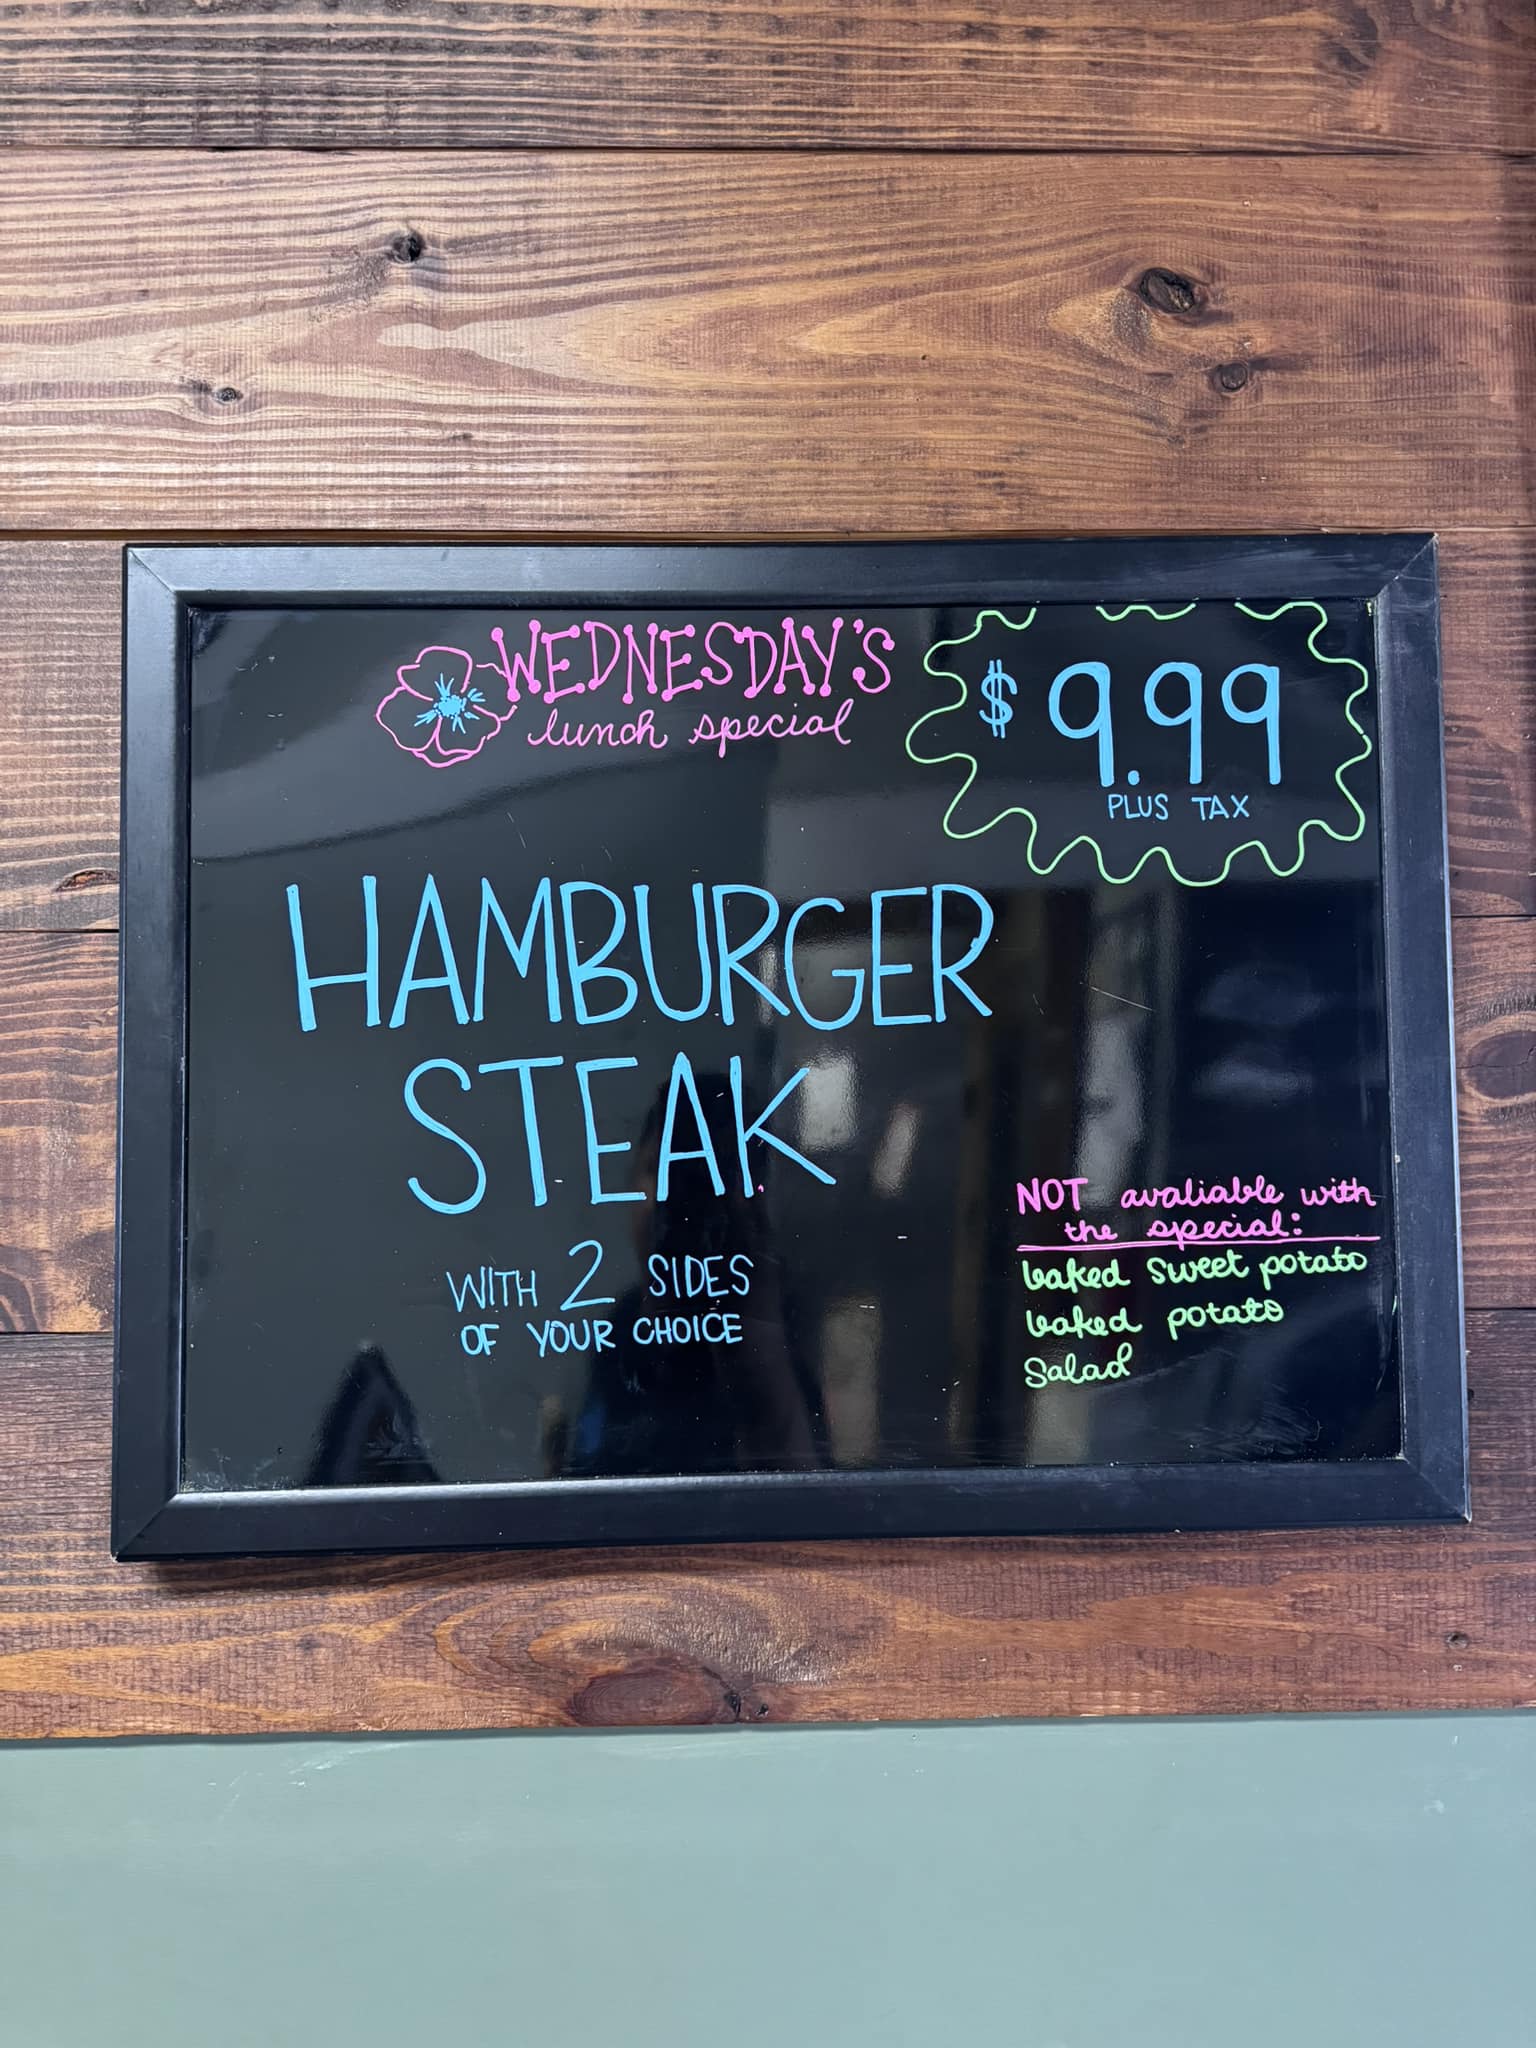 WEDNESDAY'S
lunch special
$ 9.99
PLUS TAX
HAMBURGER
STEAK
WITH 2 SIDES
OF YOUR CHOICE
NOT avaliable with
the special:
baked sweet potato
baked potato
Salad